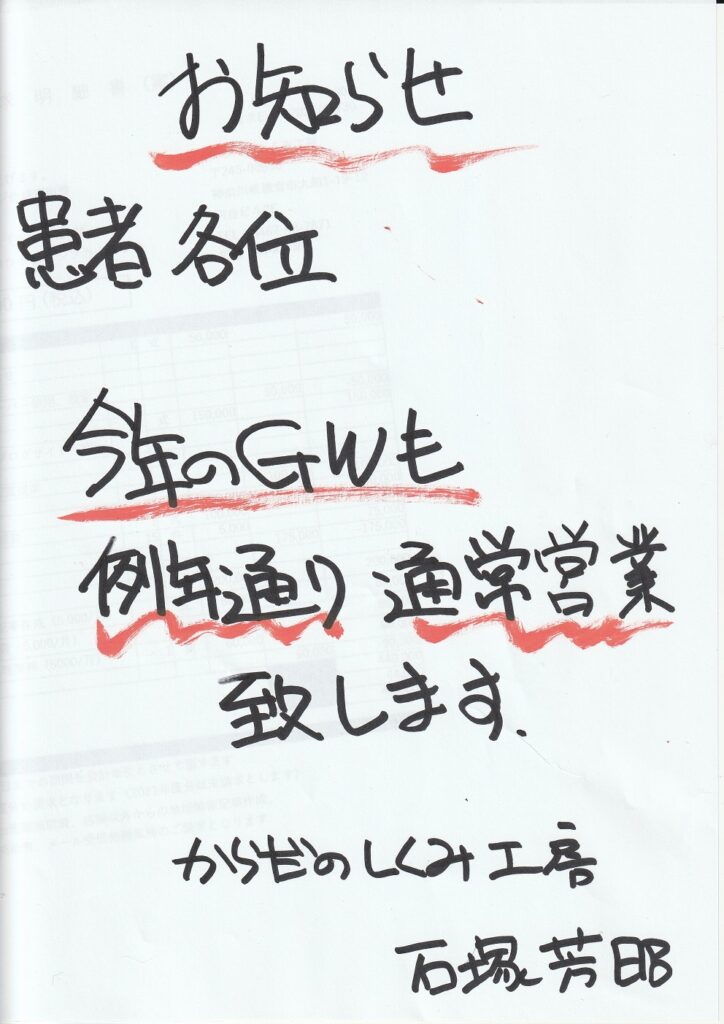 お知らせ
患者 各位
今年のGWも
例年通り 通常営業
致します.
からだのしくみ工房
石塚芳郎